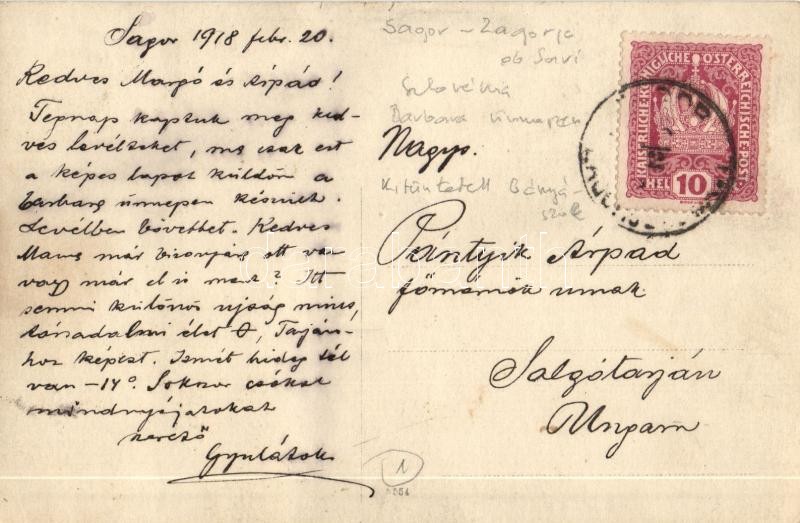 Sagor 1918 febr. 20.
Kedves Margó és Árpád!
Tegnap kaptuk meg ked-
ves levélteket, ma csak ezt
a képes lapot küldöm a
Barbara ünnepen készült.
Levélben bővebbet. Kedves
Mama már bizonyára ott va
vagy már el is ment? Itt
semmi különös ujság nincs,
társadalmi élet 0, Tarján-
hoz képest. Ismét hideg tél
van -14°. Sokszor csókol
mindnyájatokat
szerető
Gyulátok
Sagor - Zagorje
ob Savi
Szlovénia
Barbara ünnepen
Nagys.
Kitüntetett Bányá-
szok
Pintyik Árpád
főmérnök urnak
Salgótarján
Ungarn
KAISERLICHE KÖNIGLICHE ÖSTERREICHISCHE POST
HEL 10
SAGOR
1
darabanth